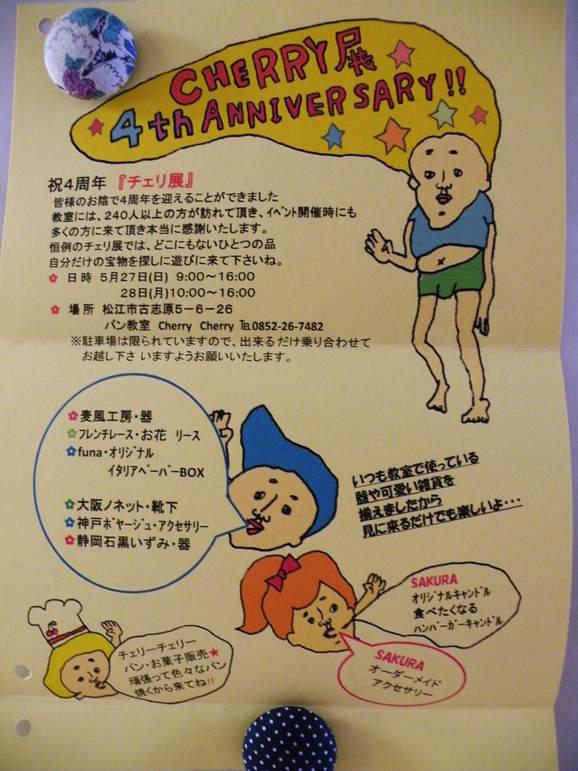 CHERRY展
4th ANNIVERSARY!!
祝4周年 『チェリ展』
皆様のお陰で4周年を迎えることができました
教室には、240人以上の方が訪れて頂き、イベント開催時にも
多くの方に来て頂き本当に感謝いたします。
恒例のチェリ展では、どこにもないひとつの品
自分だけの宝物を探しに遊びに来て下さいね。
日 時 5月27日(日) 9:00～16:00
28日(月)10:00～16:00
場 所 松江市古志原5－6－26
パン教室 Cherry Cherry ℡0852-26-7482
※駐車場は限られていますので、出来るだけ乗り合わせて
お越し下さ いますようお願いいたします。
麦風工房・器
フレンチレース・お花 リース
funa・オリジナル
イタリアペーパーBOX
大阪ノネット・靴下
神戸ボヤージュ・アクセサリー
静岡石黒いずみ・器
いつも教室で使っている
器や可愛い雑貨を
揃えましたから
見に来るだけでも楽しいよ・・・
SAKURA
オリジナルキャンドル
食べたくなる
ハンバーガーキャンドル
SAKURA
オーダーメイド
アクセサリー
チェリーチェリー
パン・お菓子販売★
頑張って色々なパン
焼くから来てね!!